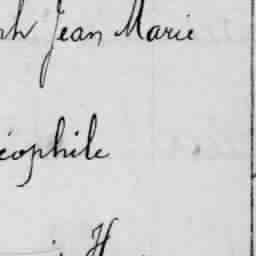 ph Jean Marie
éophile
H